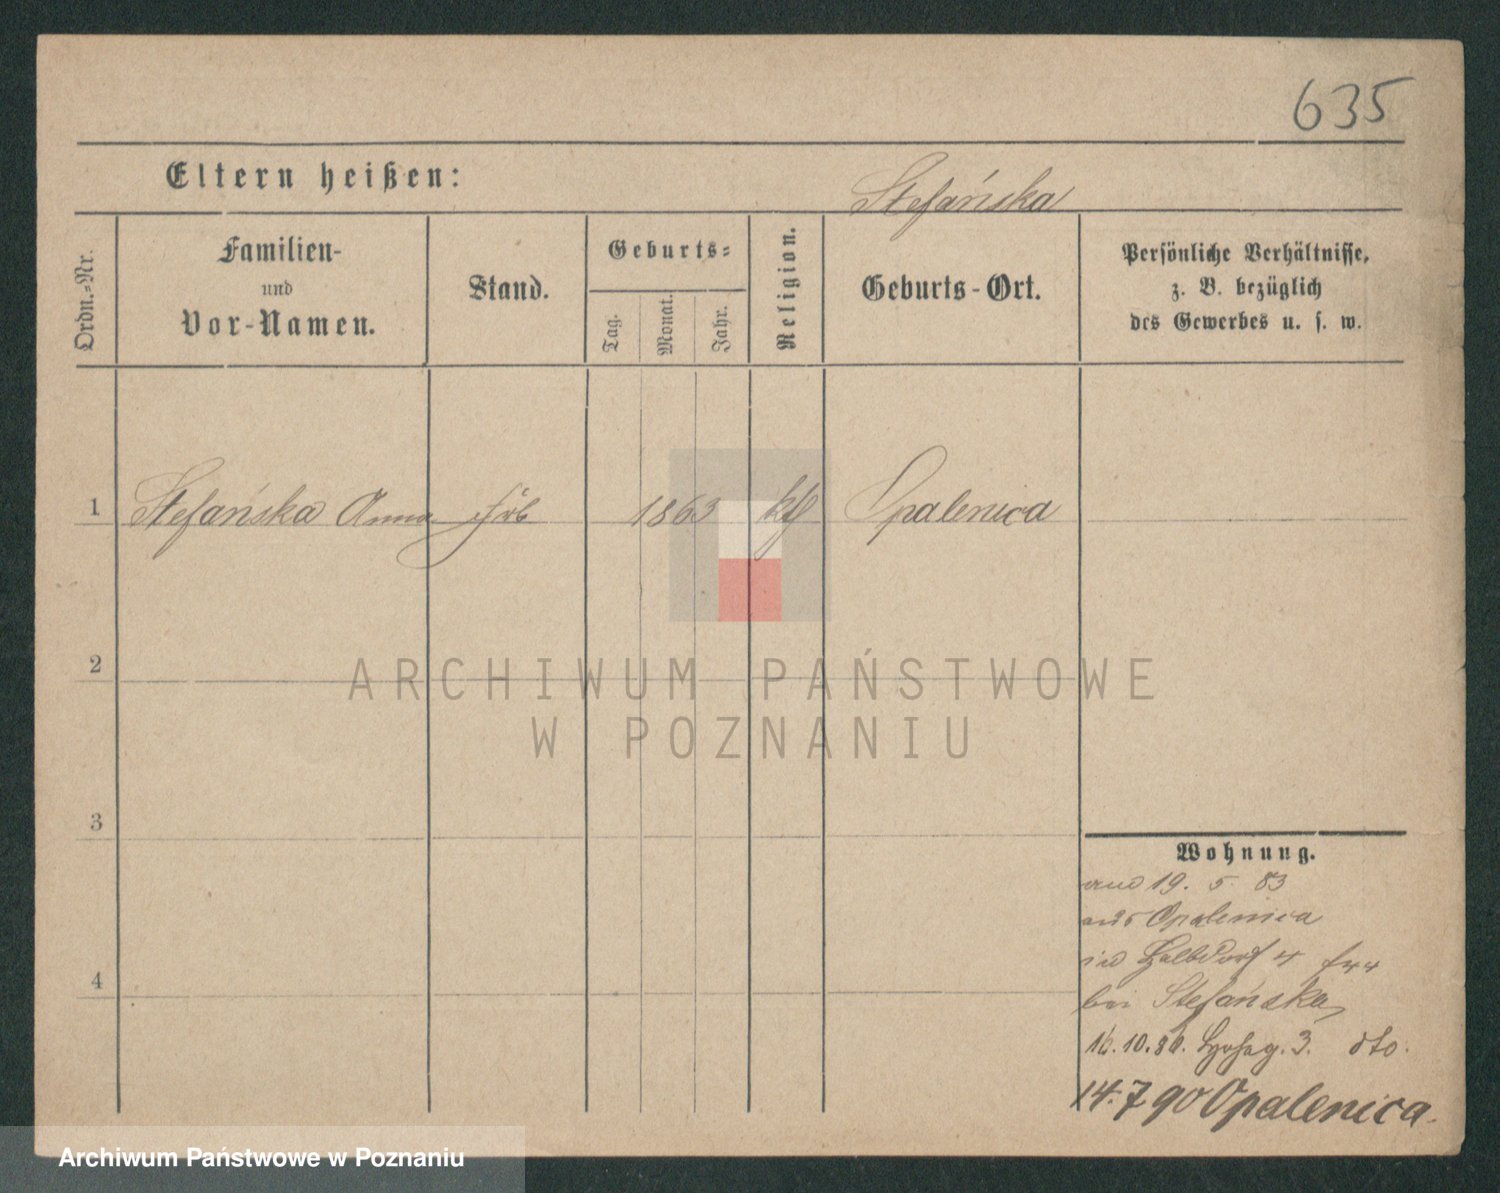 635
Eltern heißen:
Stefańska
Ordn.-Nr.
Familien-
und
Vor-Namen.
Stand.
Geburts-
Tag.
Monat.
Jahr.
Religion.
Geburts-Ort.
Persönliche Verhältnisse,
z. B. bezüglich
des Gewerbes u. s. w.
1 Stefańska Anna 1863 kth Opalenica
2
3
4
ARCHIWUM PAŃSTWOWE
W POZNANIU
Wohnung.
19. 5. 83
aus Opalenica
in Halbdorf 4
bei Stefańska
16.10.86. 3. dto.
14.7 90 Opalenica
Archiwum Państwowe w Poznaniu